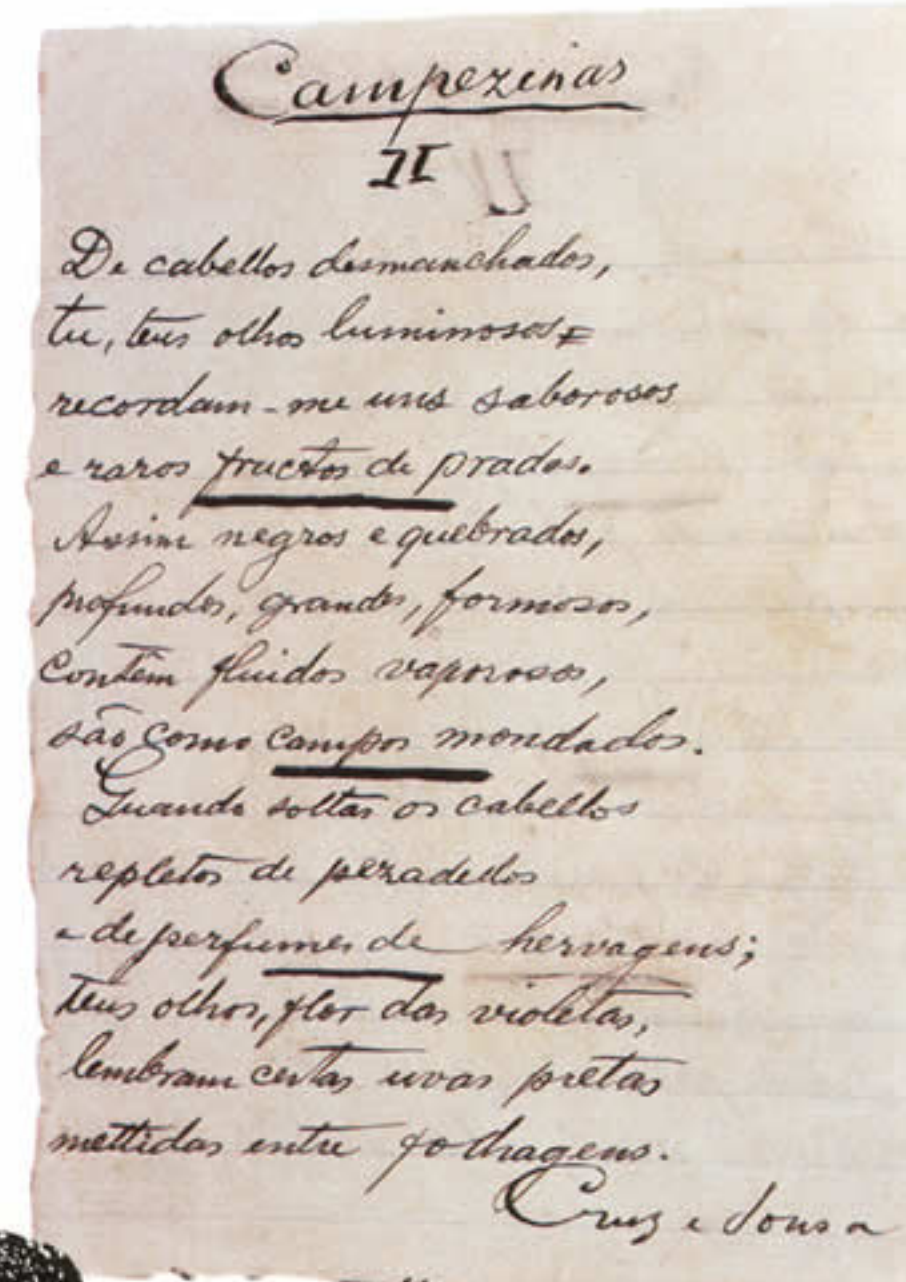 Campezinas
II
De cabellos desmanchados,
tu, teus olhos luminosos
recordam-me uns saborosos
e raros fructos de prados.
Assim negros e quebrados,
profundos, grandes, formosos,
contêm fluidos vaporosos,
são como campos mondados.
Quando soltas os cabellos
repletos de pezadellos
e de perfumes de hervagens;
teus olhos, flor das violetas,
lembram certas uvas pretas
mettidas entre folhagens.
Cruz e Sousa